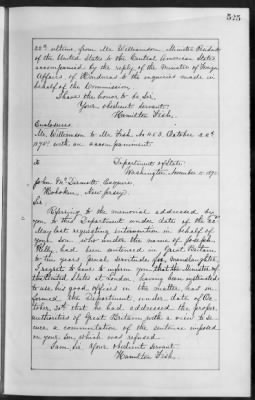 525
22d ultimo, from Mr. Williamson, Minister Resident
of the United States to the Central American States
accompanied by the reply of the Minister of Foreign
Affairs, of Honduras to the inquiries made in
behalf of the Commission.
I have the honor to be, Sir,
Your obedient servant.
Hamilton Fish.
Enclosures
Mr. Williamson to Mr. Fish. No 453. October 22d
with an accompaniment.
Department of State.
Washington, November 11,
John McDermott Esquire.
Hoboken, New Jersey.
Sir,
Referring to the memorial addressed by
you to this Department under date of the
May last requesting intercession in behalf of
your son who under the name of Joseph
Kelly had been sentenced in Great Britain,
to ten years penal servitude for manslaughter,
I regret to have to inform you that the Minister of
the United States at London, having been instructed
to use his good offices in the matter, has in
formed the Department, under date of Oc
tober, 30th that he had addressed the proper
authorities of Great Britain, with a view to se
cure a commutation of the sentence imposed
on your son which was refused.
I am, Sir, Your obedient servant
Hamilton Fish.